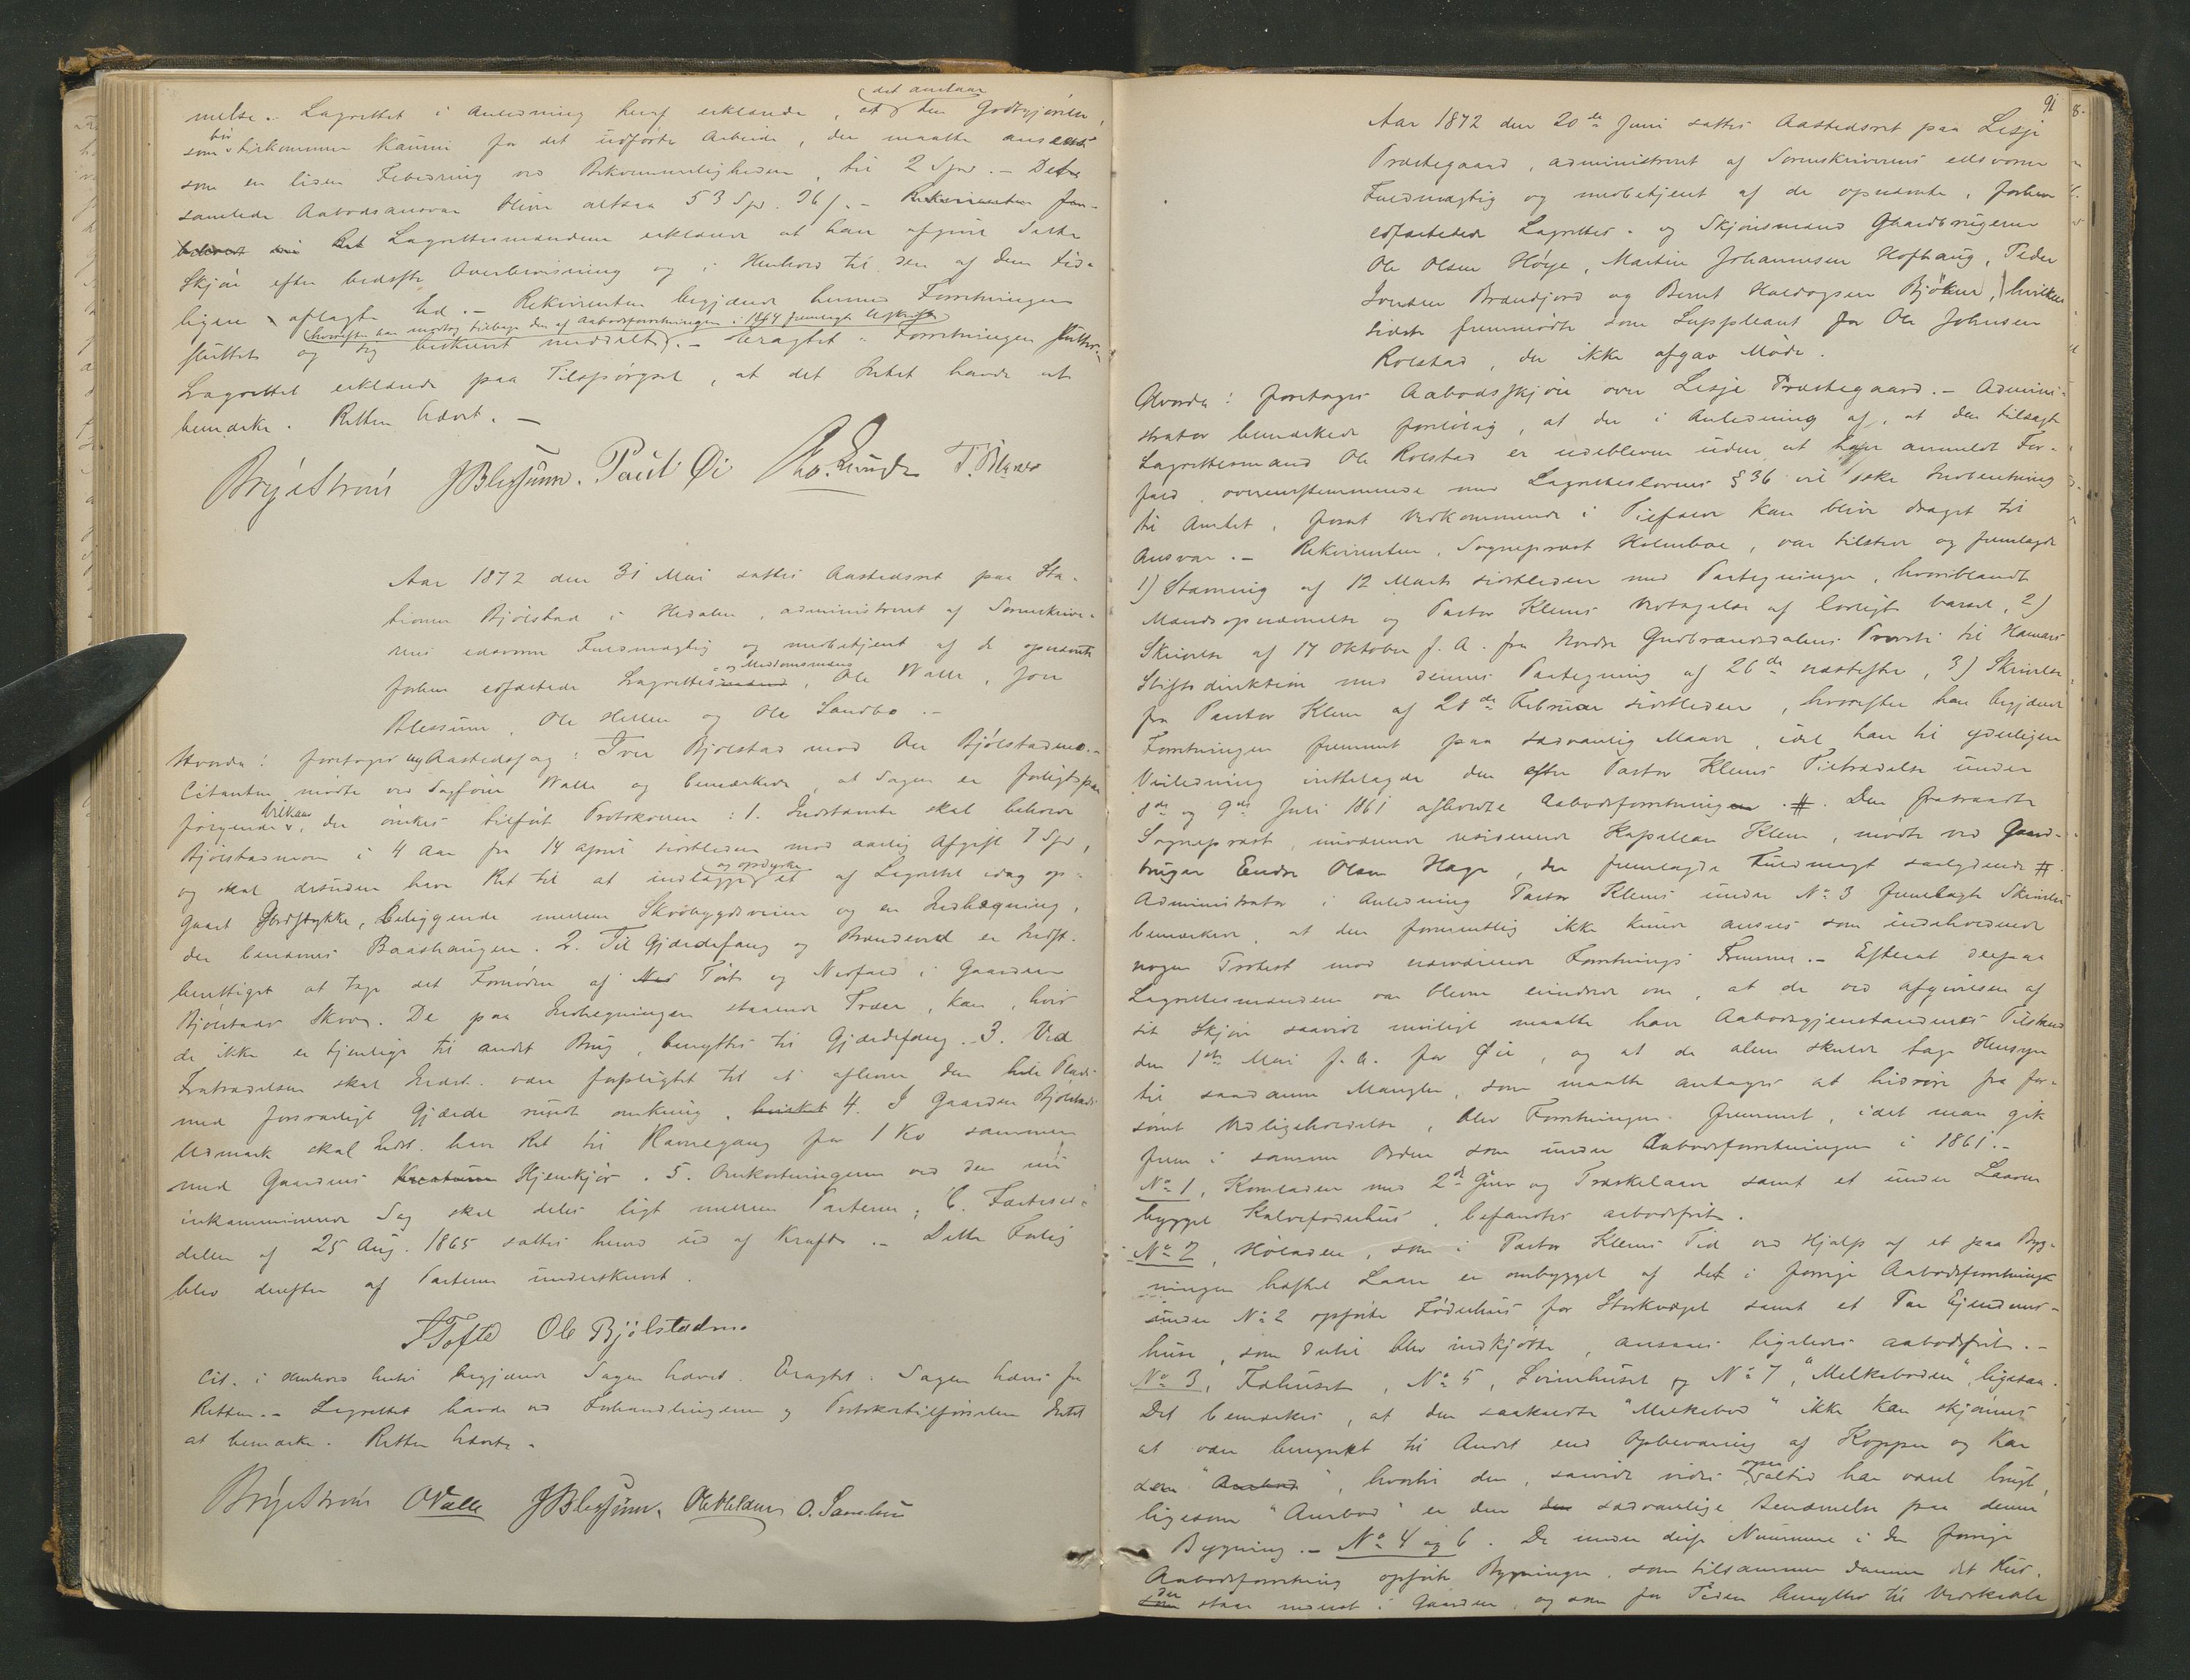 melse. Lagrettet i Anledning heraf erklærede, at det anslaar den Godtgjørelse,
som bør tilkomme Kaurin for det udførte Arbeide, der maatte ansees
som en liden Forbedring ved Bekvemmeligheden, til 2 Spd. – Det
samlede Aabodsansvar bliver altsaa 53 Spd. 96 ſ. – Rekvirenten for-
Lagrettesmændene erklærede at have afgivet dette
Skjøn efter bedste Overbevisning og i Henhold til den af dem tid-
ligere aflagte Ed. – Rekvirenten begjærede herved Forretningen
sluttet og sig beskrevet meddelt, hvorefter han modtog tilbage den af Aabodsforretningen i 1864 fremlagte Udskrift. – Eragtet: Forretningen sluttes.
Lagrettet erklærede paa Tilspørgsel, at det Intet havde at
bemærke. Retten hævet. –
Bryestrøm JBlessum. Paul Øi Tho. Lunde T.
Aar 1872 den 31 Mai sattes Aastedsret paa Sta-
tionen Bjølstad i Hedalen, administreret af Sorenskrive-
rens edsvorne Fuldmægtig og medbetjent af de opnævnte
forhen edfæstede Lagrettes og Meddomsmænd, Ole Walle, Jon
Blessum, Ole Hellen og Ole Sandbo. –
Hvorda: foretoges ny Aastedssag: Iver Bjølstad mod Ole Bjølstadmo. –
Citanten mødte ved Sagfører Walle og bemærkede, at Sagen er forligt paa
følgende Vilkaar, der ønskes tilført Protokollen: 1. Indstævnte skal beholde
Bjølstadmoen i 4 Aar fra 14 April sidstleden mod aarlig Afgift 7 Spd,
og skal desuden have Ret til at indlægge og opdyrke et af Lagrettet idag op-
gaaet Jordstykke, beliggende mellem Skovbygdsveien og en Indhegning,
der benævnes Baashaugen. 2. Til Gjærdefang og Brændeved er Indst.
berettiget at tage det Fornødne af Tørt og Nedfald i Gaarden
Bjølstads Skov. De paa Indhegningen staaende Træer, kan, hvis
de ikke er tjenlige til andet Brug, benyttes til Gjærdefang. 3. Ved
Fratrædelsen skal Indst. være forpligtet til at aflevere den hele Plads
med forsvarligt Gjærde rundt omkring. 4. I Gaarden Bjølstads
Udmark skal Indst. have Ret til Havnegang for 1 Ko sammen
med Gaardens Hjemkjør. 5. Omkostningerne ved den nu
inkaminerede Sag skal deles ligt mellem Parterne; 6. Fæstesed-
delen af 25 Aug. 1865 sættes herved ud af Kraft. – Dette Forlig
blev derefter af Parterne underskrevet.
I Tofte Ole Bjölstadmo
Cit. i Henhold hertil begjærede Sagen hævet. Eragtet: Sagen hæves fra
Retten. – Lagrettet havde ved Forhandlingerne og Protokoltilførselen Intet
at bemærke. Retten hævet. –
Bryestrøm OValle JBlessum. Ole Hellen O. Sandbu
91
Aar 1872 den 20de Juni sattes Aastedsret paa Lesje
Præstegaard, administreret af Sorenskriverens edsvorne
Fuldmægtig og medbetjent af de opnævnte, forhen
edfæstede Lagrettes- og Skjønsmænd Gaardbrugerne
Ole Olsen Høye, Martin Johannesen Hofhaug, Peder
Iversen Brændjord og Bernt Haldogsen Bjökne, hvilken
sidste fremmødte som Suppleant for Ole Johnsen
Rolstad, der ikke afgav Møde.
Hvorda: foretoges Aabodsskjøn over Lesje Præstegaard. – Admini-
strator bemærkede foreløbig, at der i Anledning af, at den tilsagte
Lagrettesmand Ole Rolstad er udebleven uden at have anmeldt For-
fald, overensstemmende med Lagrettelovens § 36 vil ske Indberetning
til Amtet, forat Vedkommende i Tilfælde kan blive draget til
Ansvar. – Rekvirenten, Sognepræst Holmboe, var tilstede og fremlagde
1) Stævning af 12 Marts sidstleden med Paategninger, hvoriblandt
Mandsopnævnelse og Pastor Klems Vedtagelse af lovligt Varsel, 2)
Skrivelse af 17 Oktober f. A. fra Nordre Gudbrandsdalens Provsti til Hamars
Stiftsdirektion med dennes Paategning af 26de næstefter, 3) Skrivelse
fra Pastor Klem af 28de Februar sidstleden, hvorefter han begjærede
Forretningen fremmet paa sædvanlig Maade, idet han til yderligere
Veiledning irettelagde den efter Pastor Klems Tiltrædelse under
8de og 9de Juli 1861 afholdte Aabodsforretning #. Den fratraadte
Sognepræst, nuværende residerende Kapellan Klem, mødte ved Gaard-
bruger Endre Olsen Hage, der fremlagde Fuldmagt saalydende #.
Administrator i Anledning Pastor Klems under No 3 fremlagte Skrivelse
bemærkede, at den formentlig ikke kunde ansees som indeholdende
nogen Protest mod nærværende Forretnings Fremme. – Efterat derpaa
Lagrettesmændene var blevne erindrede om, at de ved Afgivelsen af
sit Skjøn saavidt muligt maatte have Aabodsgjenstandenes Tilstand
den 1ste Mai f. A. for Øie, og at de alene skulde tage Hensyn
til saadanne Mangler, som maatte antages at hidrøre fra for-
sømt Vedligeholdelse, blev Forretningen fremmet, idet man gik
frem i samme Orden som under Aabodsforretningen i 1861. –
No 1, Kornladen med 2de Gulv og Træskelaave samt et under Laaven
bygget Kalvefoderhus, befandtes aabodsfrit.
No 2, Høladen, som i Pastor Klems Tid ved Hjælp af et paa Byg-
ningen hæftet Laan er ombygget af det i forrige Aabodsforretning
under No 2 opførte Foderhus for Storkvæget samt et Par Ejendoms-
huse, som dertil blev indkjøbte, ansaaes ligeledes aabodsfrit. –
No 3, Fæhuset, No 5, Svinehuset og No 7, "Melkeboden" ligesaa.
Det bemærkes, at den saakaldte "Melkebod" ikke kan skjønnes
at være benyttet til Andet end Opbevaring af Kopper og Kar
som, hvortil den, saavidt vides ogsaa altid har været brugt,
ligesom "Aurbod" er den sædvanlige Benævnelse paa denne
Bygning. – No 4 og 6. De under disse Nummere i den forrige
Aabodsforretning opførte Bygninger, som tilsammen danner det Hus,
der staar nederst i Gaarden, og som for Tiden benyttes til Vedskjule